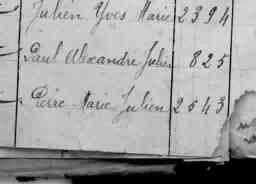 Julien Yves Marie 2394
Paul Alexandre Julien 825
Pierre Marie Julien 2543